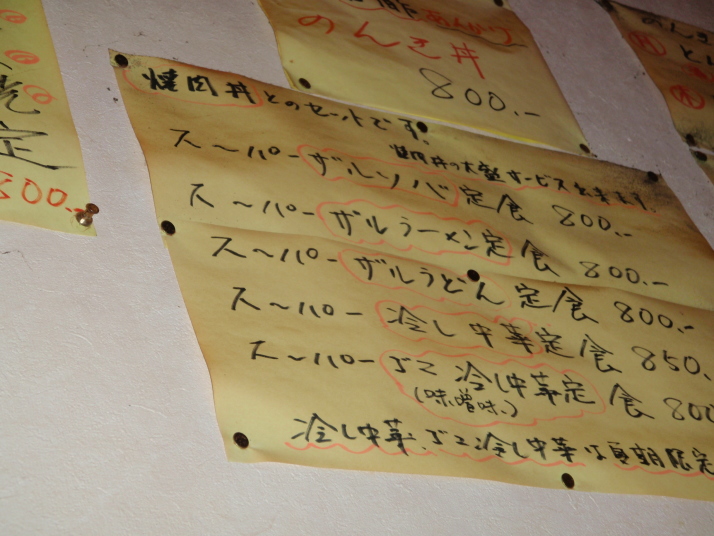 のんき丼
800.-
焼肉丼とのセットです。
焼肉丼の大盛サービス出来ます。
スーパーザルソバ定食 800.-
スーパーザルラーメン定食 800.-
スーパーザルうどん定食 800.-
スーパー冷し中華定食 850.
スーパーゴマ冷し中華定食 800
(味噌味)
冷し中華・ゴマ冷し中華は夏期限定
定
800.-